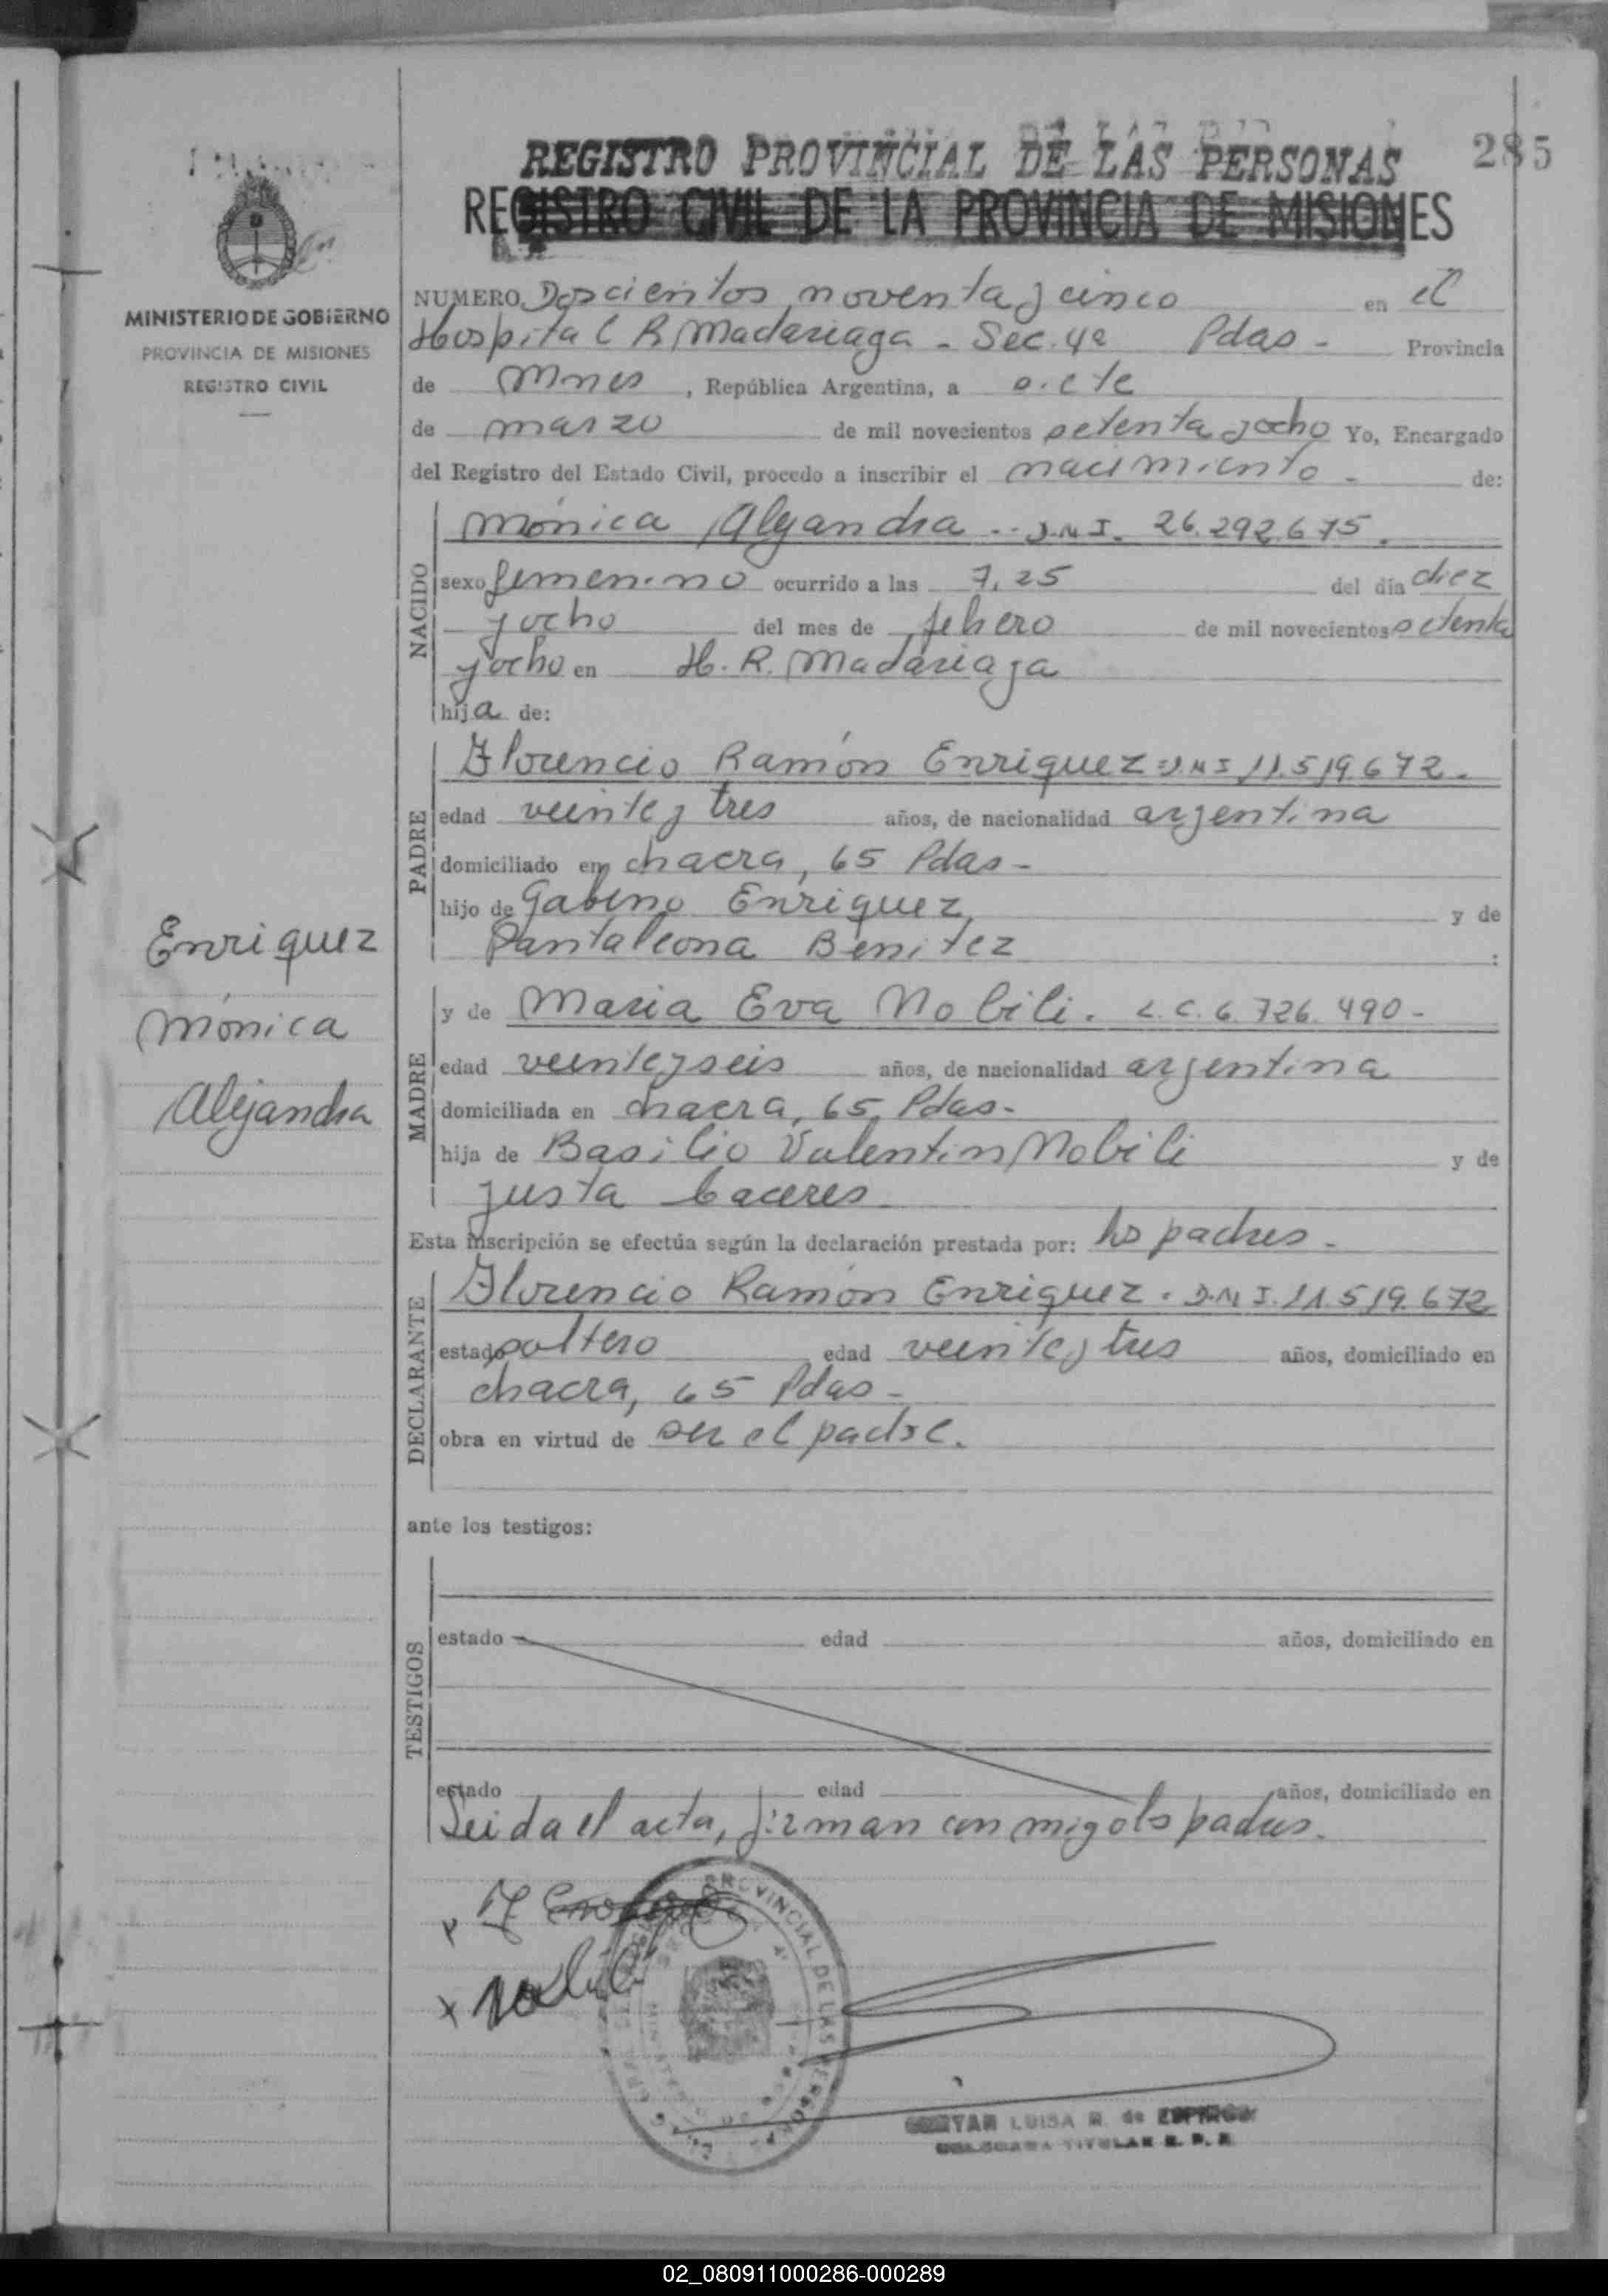 285
REGISTRO PROVINCIAL DE LAS PERSONAS
REGISTRO CIVIL DE LA PROVINCIA DE MISIONES
MINISTERIO DE GOBIERNO
PROVINCIA DE MISIONES
REGISTRO CIVIL
NUMERO Doscientos noventa y cinco en el
Hospital R Madariaga - Sec. 4a Pdas - Provincia
de Mnes, República Argentina, a siete
de marzo de mil novecientos setenta y ocho Yo, Encargado
del Registro del Estado Civil, procedo a inscribir el nacimiento - de:
NACIDO
Mónica Alejandra -- D.N.I. 26.292.675.
sexo femenino ocurrido a las 7,25 del día diez
y ocho del mes de febrero de mil novecientos setenta
y ocho en H. R. Madariaga
hija de:
PADRE
Florencio Ramón Enriquez = D.N.I 11.519.672.
edad veinte y tres años, de nacionalidad argentina
domiciliado en chacra, 65 Pdas -
hijo de Gabino Enriquez y de
Pantaleona Benitez :
Enriquez
Mónica
Alejandra
MADRE
y de Maria Eva Nobili. L.C. 6.726.490 -
edad veinte y seis años, de nacionalidad argentina
domiciliada en chacra, 65, Pdas -
hija de Basilio Valentin Nobili y de
Justa Caceres
Esta inscripción se efectúa según la declaración prestada por: los padres -
DECLARANTE
Florencio Ramón Enriquez - D.N.I. 11.519.672
estado soltero edad veinte y tres años, domiciliado en
chacra, 65 Pdas -
obra en virtud de ser el padre.
ante los testigos:
TESTIGOS
estado edad años, domiciliado en
estado edad años, domiciliado en
Leida el acta, firman conmigo ls padres.
x
x Nobili
PROVINCIAL DE LAS PERSONAS
LUISA R. de
TITULAR R. P. P.
02_080911000286-000289